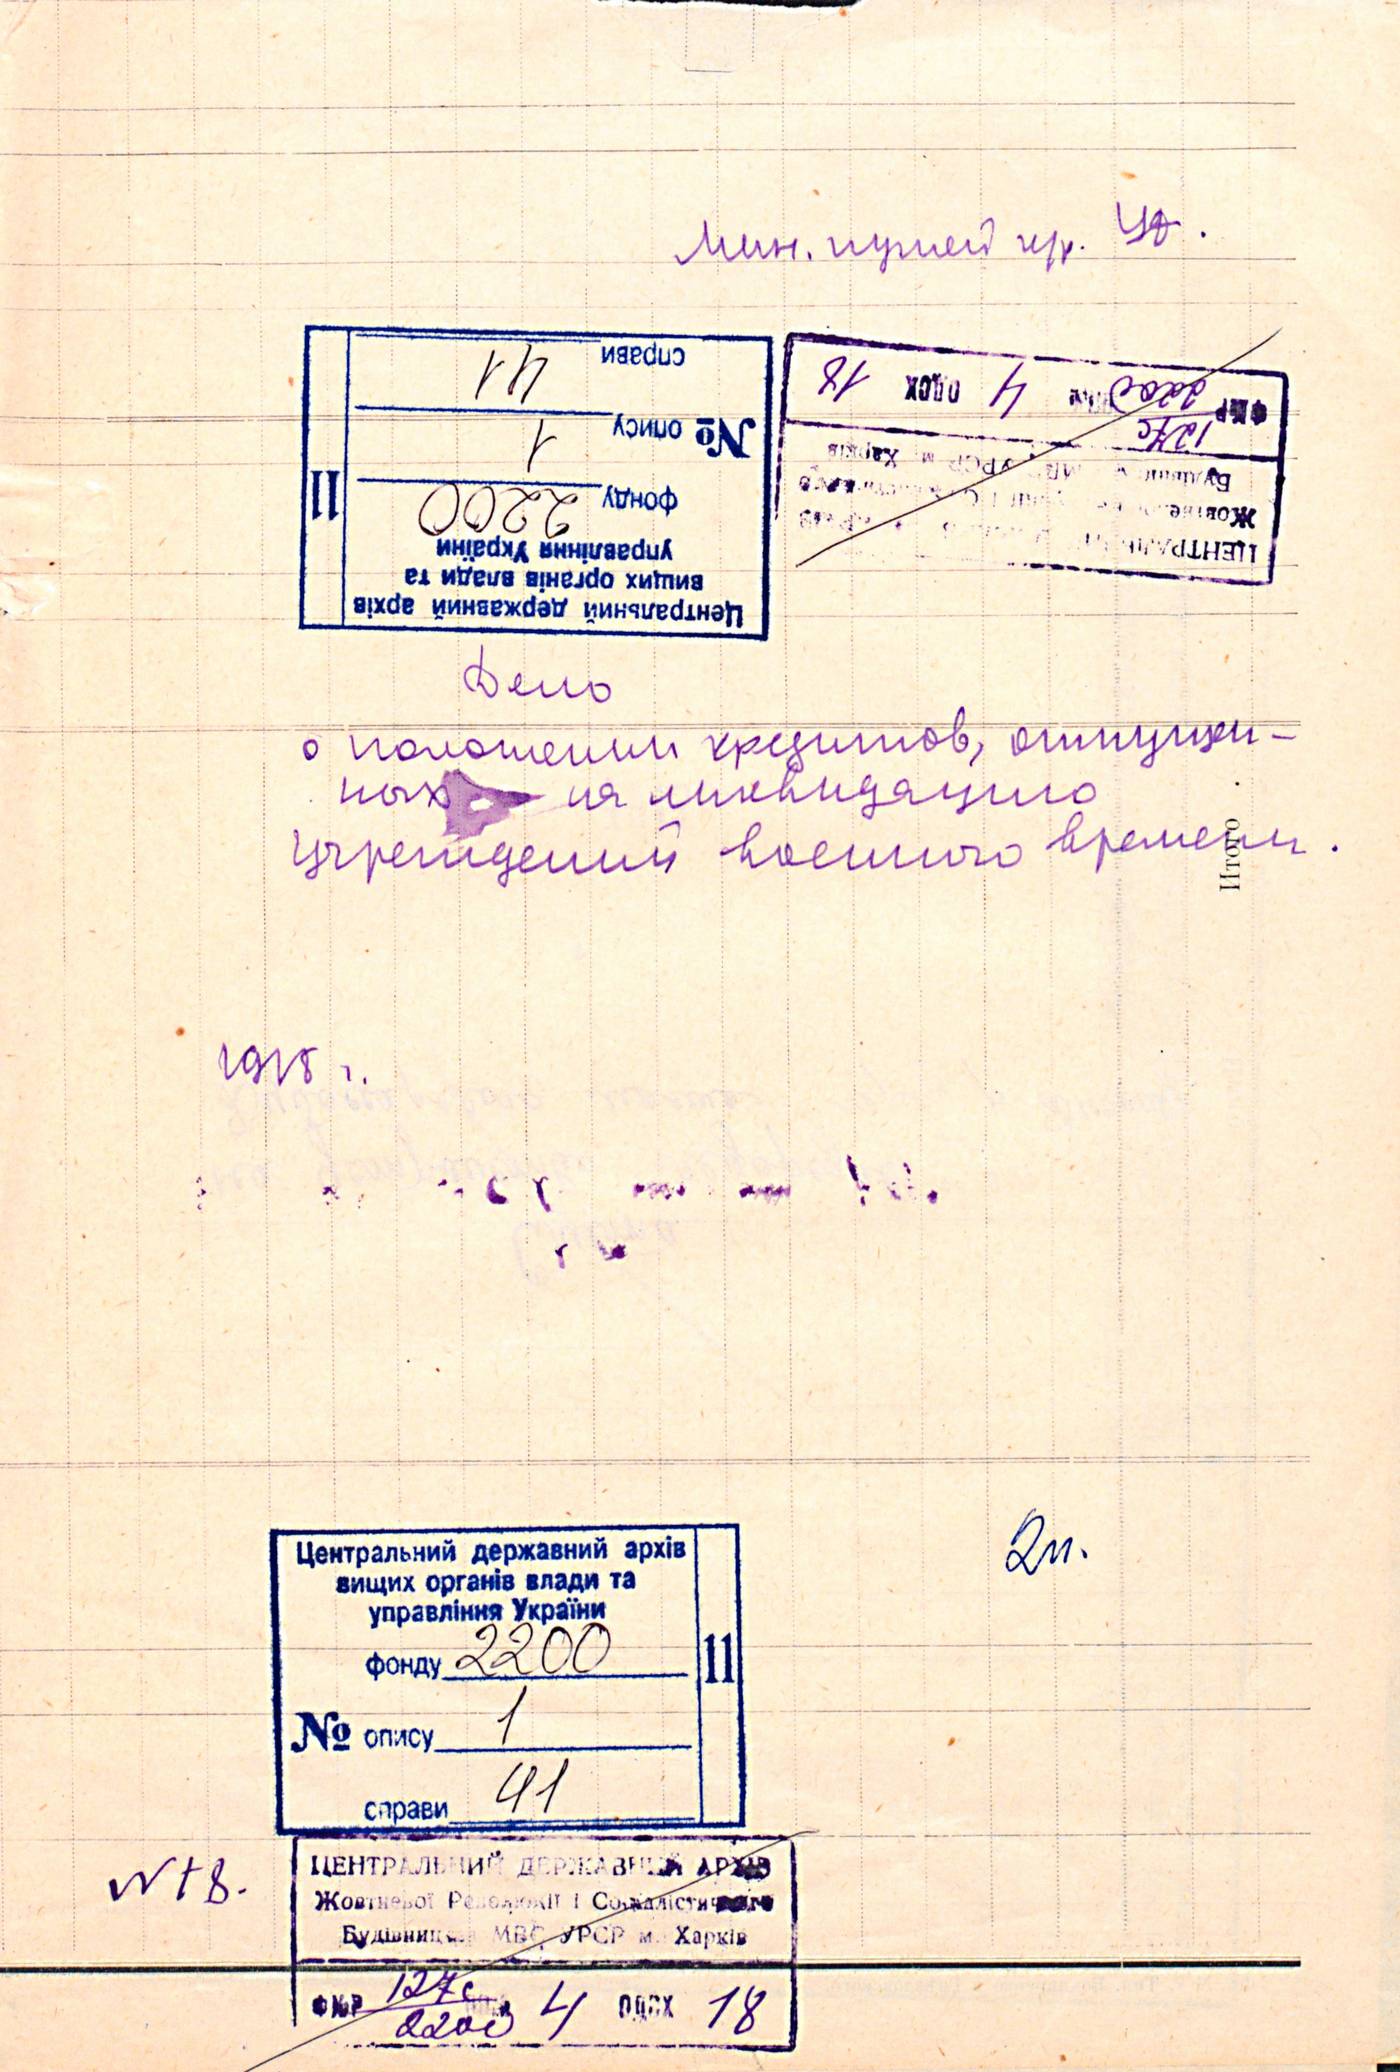 Мин. путей
справи 41
№ опису 1
фонду 2200
управління України
вищих органів влади та
Центральний державний архів
11
ФКР 127с 2200 4 ОДСХ 18
Будівництва МВС УРСР м. Харків
Жовтневої
ЦЕНТРАЛЬНИЙ
Дело
о положении кредитов, отпущен-
ных на ликвидацию
учреждений военного времени.
Итого
1918 г.
2л.
Центральний державний архів
вищих органів влади та
управління України
фонду 2200
№ опису 1
справи 41
11
N 18.
ЦЕНТРАЛЬНИЙ ДЕРЖАВНИЙ АРХІВ
Жовтневої Революції і Соціалістичного
Будівництва МВС УРСР м. Харків
ФКР 127с 2200 4 ОДСХ 18